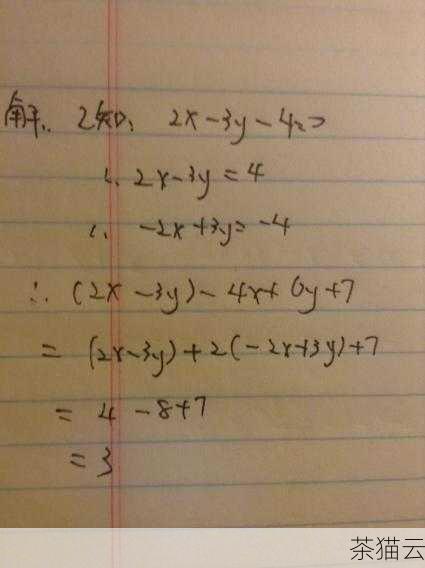 解: 已知: 2x-3y-4=0
∴ 2x-3y=4
∴ -2x+3y=-4
∴ (2x-3y)-4x+6y+7
= (2x-3y)+2(-2x+3y)+7
= 4-8+7
= 3
茶猫云